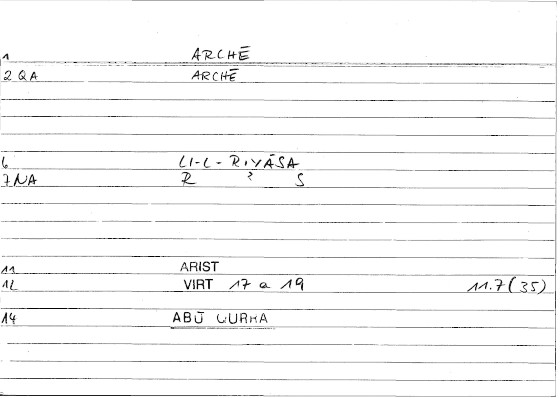 1 ARCHĒ
2 QA ARCHĒ
6 LI-L-RIYĀSA
7 NA R ʾ S
11 ARIST
12 VIRT 17 a 19 11.7 (35)
14 ABŪ QURRA